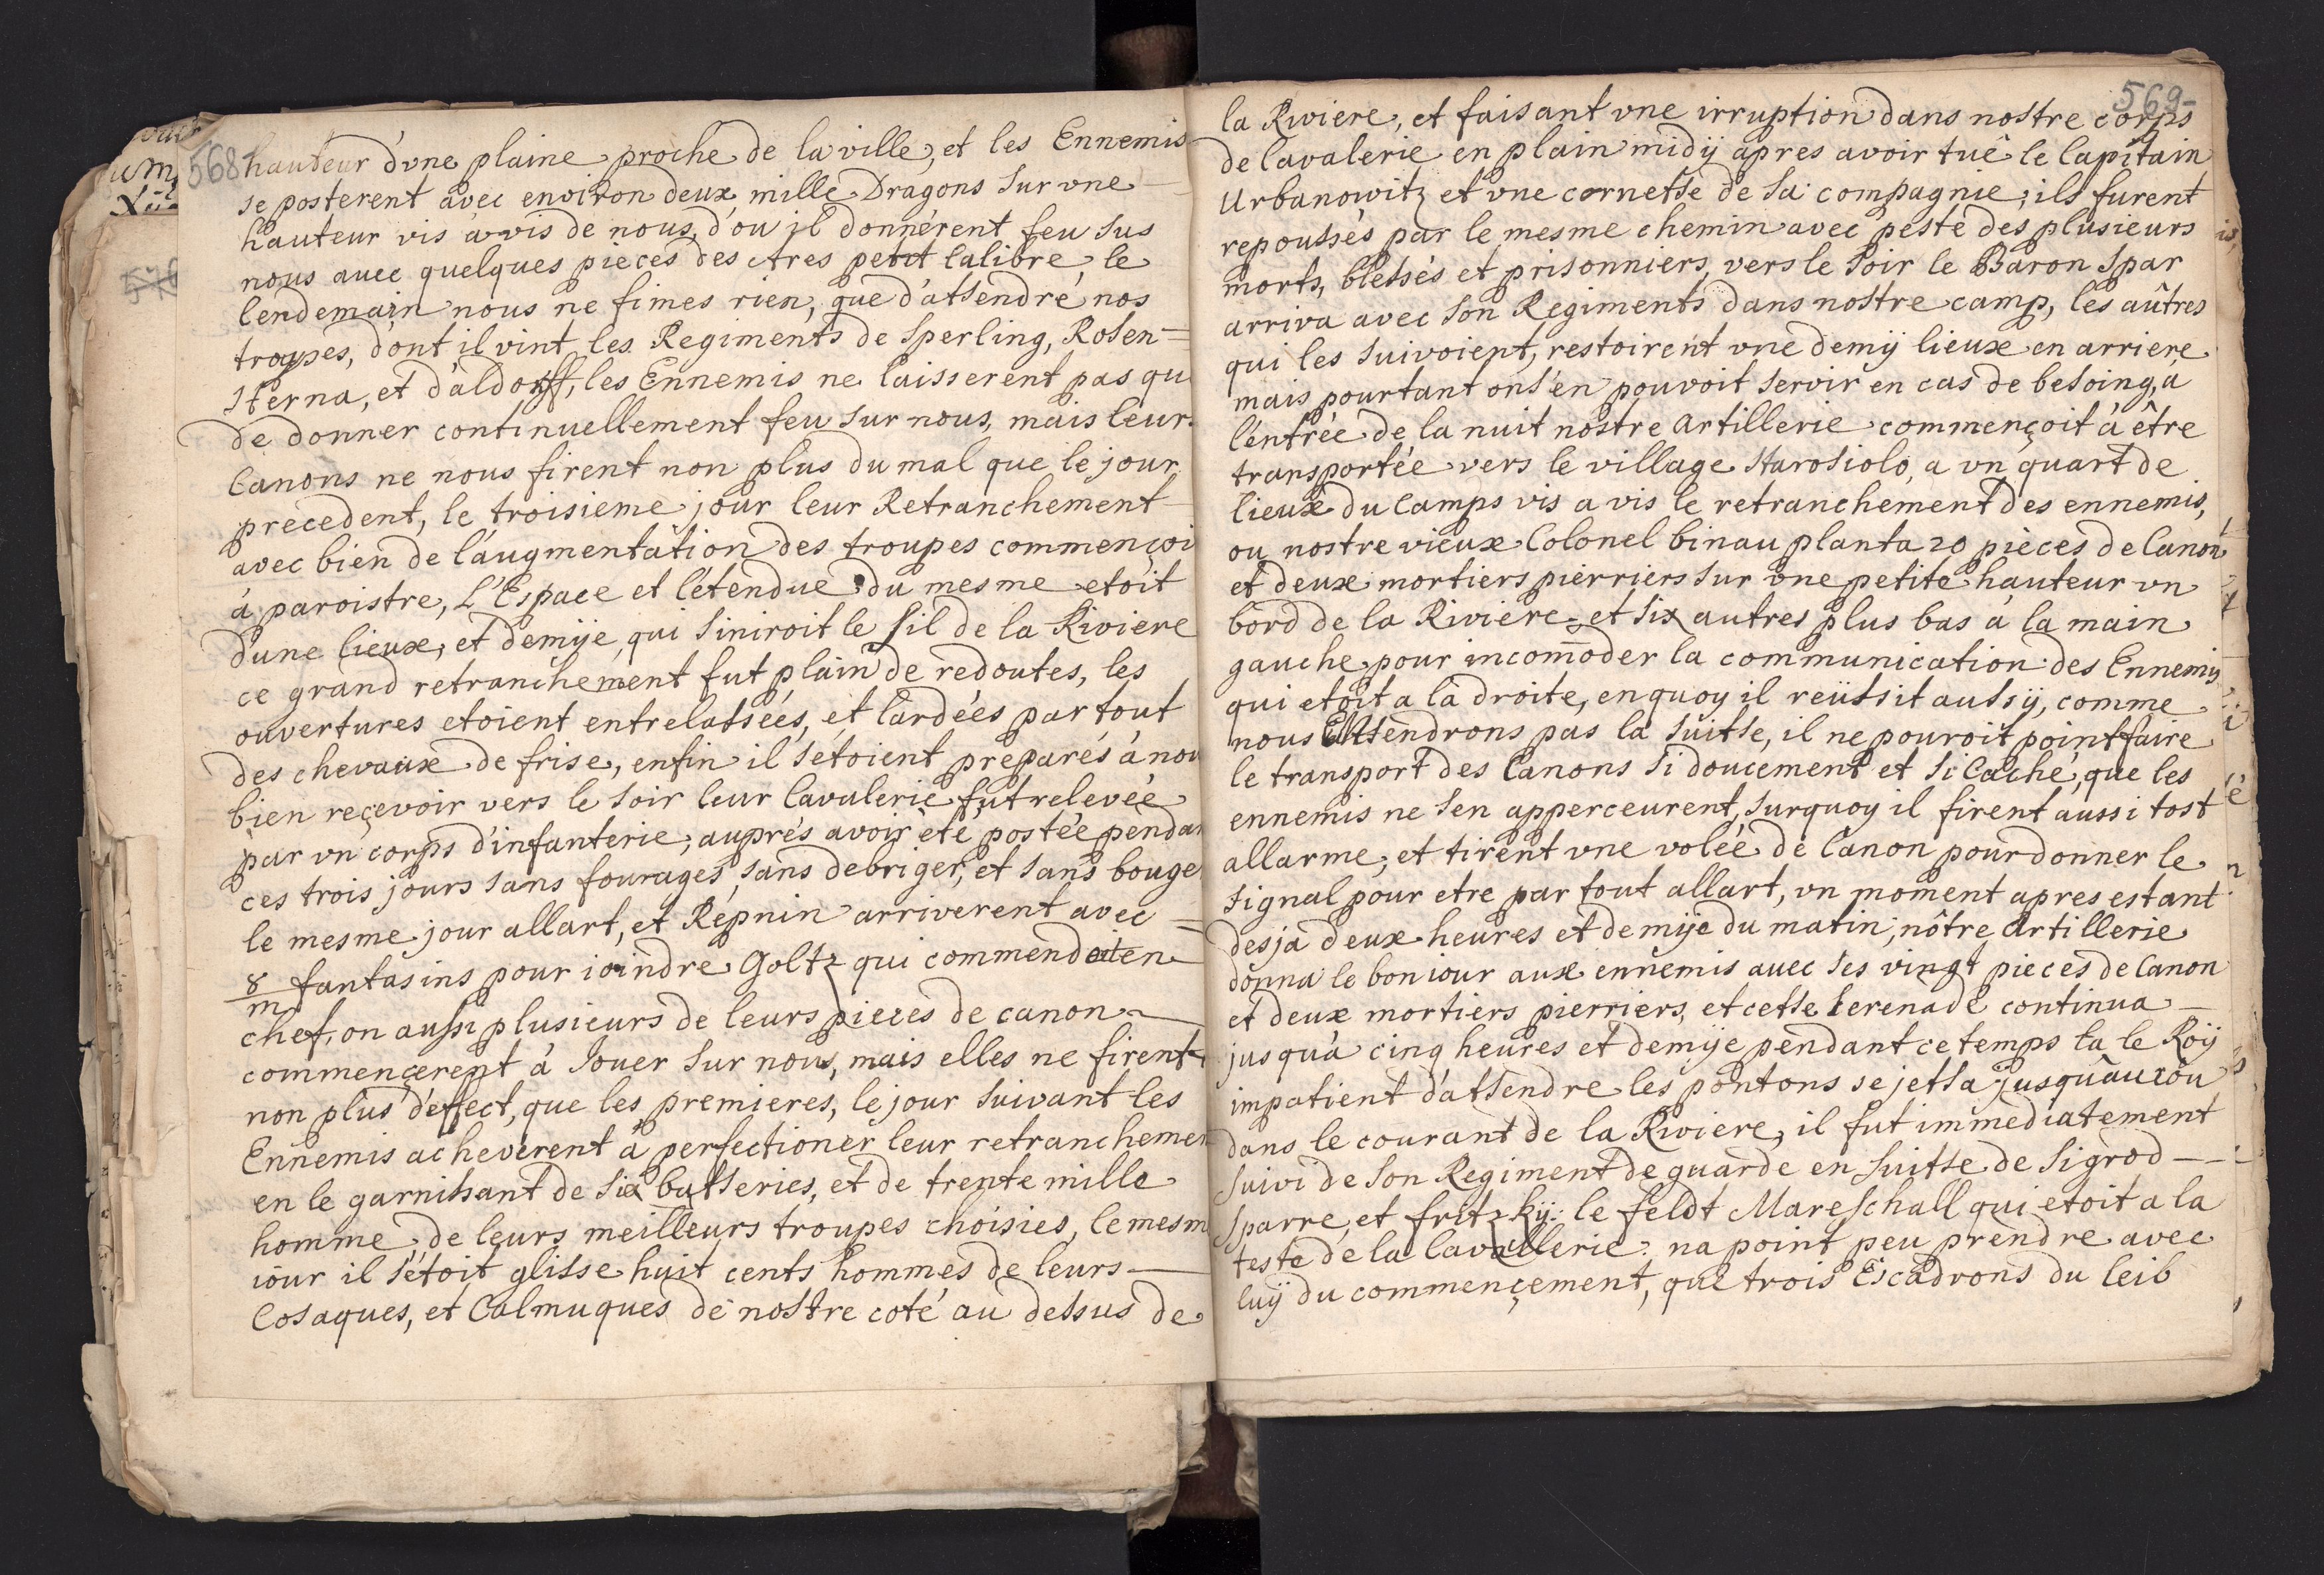 568 hauteur d'vne plaine proche de la ville, et les Ennemis
se posterent avec environ deux mille Dragons sur vne
hauteur vis à vis de nous, d'ou il donnérent feu sus
nous avec quelques pièces des Ares petit Calibre, le
lendemain nous ne fimes rien, que d'attendre nos
troupes, dont il vint les Regiments de Sperling, Rosen=
sterna, et d'aldorff, les Ennemis ne laisserent pas qu
de donner continuellement feu sur nous, mais leurs
Canons ne nous firent non plus du mal que le jour
precedent, le troisieme jour leur Retranchement
avec bien de l'augmentation des troupes commençoi
à paroistre, L'Espace et l'étendue du mesme etoit
d'une lieux, et demije, qui siniroit le fil de la Riviere
ce grand retranchement fut plain de redoutes, les
ouvertures etoient entrelatsées, et lardées par tout
des chevaux de frise, enfin il s'etoient préparés à nou
bien reçevoir vers le soir leur Cavalerie fut relevée
par vn corps d'infanterie, auprés avoir eté postée pendan
ces trois jours sans fourages, sans debriger, et sans bouge
le mesme jour allart, et Repnin arriverent avec
8/m fantasins pour ioindre Goltz qui commendoit en
chef, on aussi plusieurs de leurs pieces de canon
commencerent à Jouer sur nous, mais elles ne firent
non plus d'effect, que les premieres, le jour suivant les
Ennemis acheverent à perfectioner leur retranchemen
en le garnissant de six batteries, et de trente mille
homme de leurs meilleurs troupes choisies, le mesm
iour il s'étoit glisse huit cents hommes de leurs
Cosaques, et Calmuques de nostre coté au dessus de
569
la Riviere, et faisant vne irruption dans nostre corps
de Cavalerie en plain midÿ apres avoir tué le Capitain
Urbanowitz et vne cornette de sa compagnie; ils furent
repoussés par le mesme chemin avec peste des plusieurs
morts, blessés et prisonniers, vers le soir le Baron Spar
arriva avec son Regiments dans nostre camp, les aûtres
qui les suivoient, restoirent vne demÿ lieux en arriere
mais pourtant on s'en pouvoit servir en cas de besoing, a
l'entrée de la nuit nostre artillerie commençoit à être
transportée vers le village Starosiolo, a vn quart de
lieux du Camps vis a vis le retranchement des ennemis,
ou nostre vieux Colonel binau planta 20 pièces de Canon
et deux mortiers pierriers sur vne petite hauteur vn
bord de la Riviere, et six autres plus bas à la main
gauche pour incomoder la communication des Ennemis
qui etoit a la droite, en quoy il reüssit aussÿ, comme
nous attendrons pas la suitte, il ne pouroit point faire
le transport des Canons si doucement et si Caché, que les
ennemis ne s'en apperceurent, surquoy il firent aussi tost
allarme, et tirent vne volée de Canon pour donner le
signal pour etre par tout allart, vn moment apres estant
desja deux heures et demije du matin, nôtre artillerie
donna le bon iour aux ennemis auec ses vingt pieces de Canon
et deux mortiers pierriers, et cette serenade continua
jusqu'à cinq heures et demije pendant ce temps la le Roÿ
impatient d'attendre les pontons se jetta jusqu'au coû
dans le courant de la Riviere, il fut immediatement
suivi de son Regiment de guarde en suitte de Sigrod
Sparre, et fritzkÿ: le feldt Mareschall qui etoit a la
teste de la Cavallerie. na point peu prendre avec
luÿ du commençement, que trois Escadrons du leib